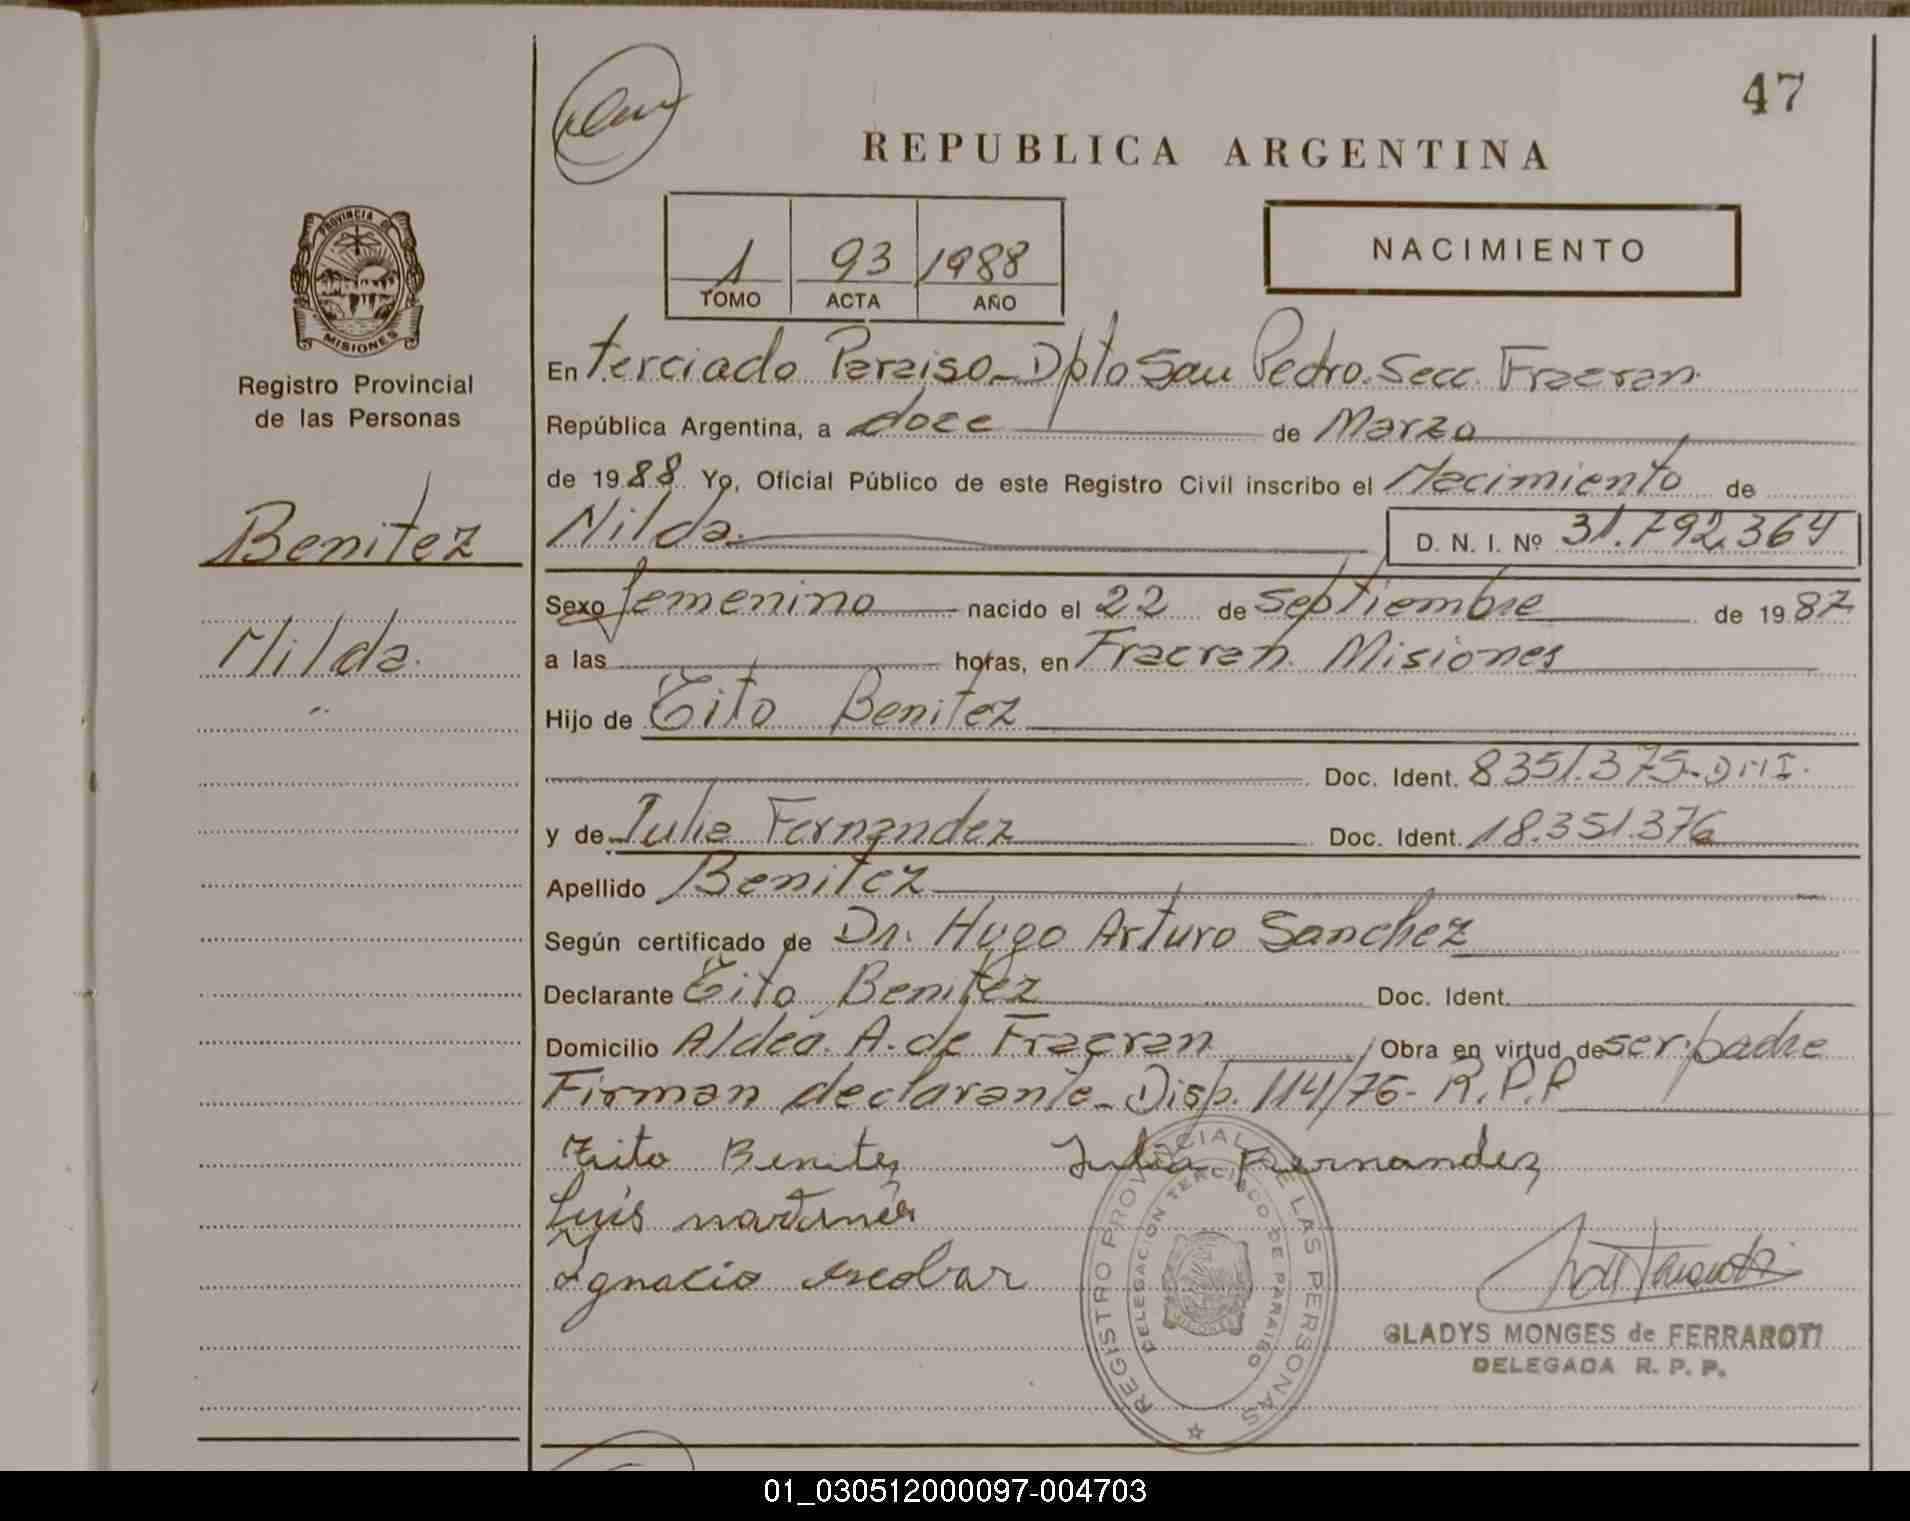 47
REPUBLICA ARGENTINA
PROVINCIA DE
MISIONES
Registro Provincial
de las Personas
Benitez
Nilda
1 93 1988
TOMO ACTA AÑO
NACIMIENTO
En terciado Paraiso - Dpto San Pedro. Secc. Fracran
República Argentina, a doce de Marzo
de 1988 Yo, Oficial Público de este Registro Civil inscribo el Nacimiento de
Nilda D. N. I. Nº 31.792.364
Sexo femenino nacido el 22 de Septiembre de 1987
a las horas, en Fracran Misiones
Hijo de Tito Benitez
Doc. Ident. 8351.375-DNI.
y de Julia Fernandez Doc. Ident. 18.351.376
Apellido Benitez
Según certificado de Dr. Hugo Arturo Sanchez
Declarante Tito Benitez Doc. Ident.
Domicilio Aldea A. de Fracran Obra en virtud de ser padre
Firman declarante - Disp. 114/76 - R.P.P
Tito Benitez Julia Fernandez
Luis
Ignacio escobar
REGISTRO PROVINCIAL DE LAS PERSONAS
DELEGACION TERCIADO DE PARAISO
GLADYS MONGES de FERRAROTI
DELEGADA R. P. P.
01_030512000097-004703